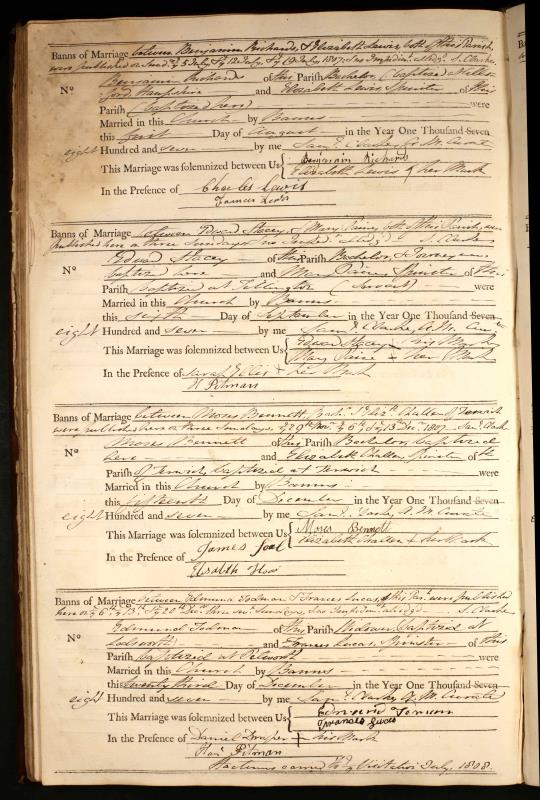 Banns of Marriage between Benjamin Richards, & Elizabeth Lewis, both of this Parish,
were published on Sundys 5 July, 12 July, 19 July 1807, no Impedimt alledgd. S. Clarke
Benjamin Richard of this Parish Bachelor, (baptized
No ford Hampshire and Elizabeth Lewis Spinster of this
Parish (baptized here) were
Married in this Church by Banns
this first Day of August in the Year One Thousand Seven
eight Hundred and seven by me Saml Clarke, A. M. Curate
This Marriage was solemnized between Us Benjamin Richard
Elizabeth Lewis + her Mark
In the Presence of Charles Lewis
Frances
Banns of Marriage between Edward Stacey, & Mary Paine, both of this Parish, were
published here on three Sundays no Imped: alledgd S. Clarke
Edward Stacey of this Parish Bachelor,
No baptized here and Mary Paine Spinster of this
Parish baptized at Tillington (Servant) were
Married in this Church by Banns
this sixth Day of September in the Year One Thousand Seven
eight Hundred and seven by me Saml Clarke, A. M. Curate
This Marriage was solemnized between Us Edward Stacey his Mark
Mary Paine + her Mark
In the Presence of Sarah Ellis + her Mark
H Pitman
Banns of Marriage between Moses Bennett, Bachr & Elizth Challen of Terwick
were published here on three Sundays, 29th Novr 6th & 13 Decr 1807. Saml Clarke
Moses Bennett of this Parish Bachelor baptized
No here and Elizabeth Challen, Spinster of the
Parish of Terwick, baptized at Terwick were
Married in this Church by Banns
this fifteenth Day of December in the Year One Thousand Seven
eight Hundred and seven by me Saml Clarke, A. M. Curate
This Marriage was solemnized between Us Moses Bennett
Elizabeth Challen + her Mark
In the Presence of James
Elsabth
Banns of Marriage between Edmund & Frances Lucas, of this Parh were published
here on 6th, 13th, & 20th Decr three sevl Sundays, no Impedimt alledgd S. Clarke
Edmund of this Parish Widower, baptized at
No Lodsworth and Frances Lucas, Spinster of this
Parish baptized at Petworth were
Married in this Church by Banns
this twenty third Day of December in the Year One Thousand Seven
eight Hundred and seven by me Saml Clarke A. M. Curate
This Marriage was solemnized between Us Edmund
Frances Lucas
In the Presence of Daniel Draper + his Mark
Pitman
carried to ye Visitation July, 1808.